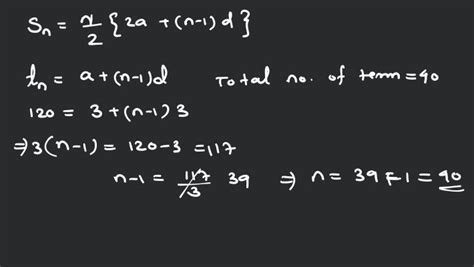 Sn = n/2 {2a + (n-1)d}
tn = a + (n-1)d Total no. of term = 40
120 = 3 + (n-1) 3
⇒ 3(n-1) = 120 - 3 = 117
n-1 = 117/3 39 ⇒ n = 39 + 1 = 40